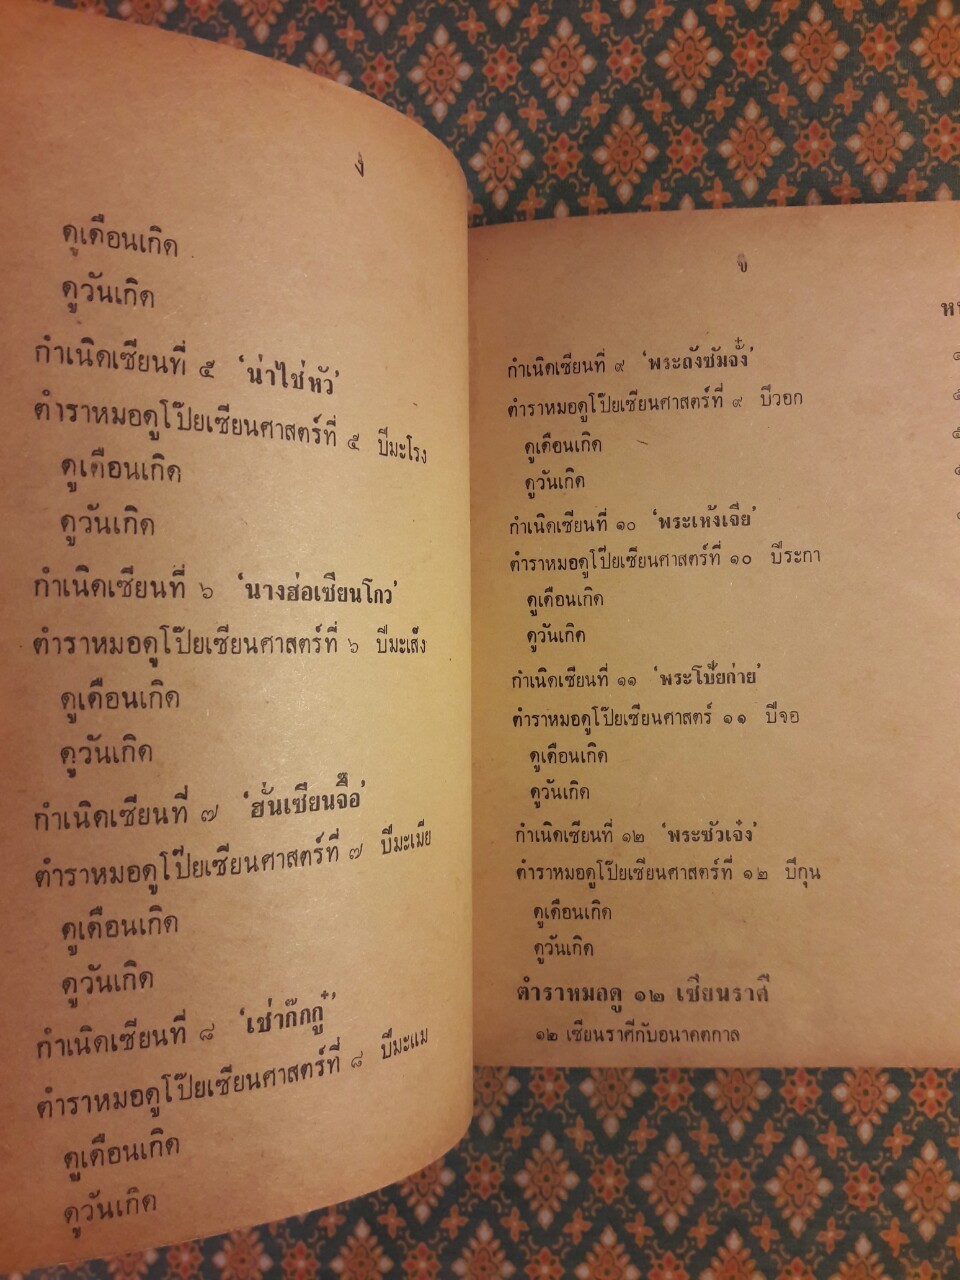 ง
ดูเดือนเกิด
ดูวันเกิด
กำเนิดเซียนที่ ๕ 'น่าไช่หัว'
ตำราหมอดูโป๊ยเซียนศาสตร์ที่ ๕ ปีมะโรง
ดูเดือนเกิด
ดูวันเกิด
กำเนิดเซียนที่ ๖ 'นางฮ่อเซียนโกว'
ตำราหมอดูโป๊ยเซียนศาสตร์ที่ ๖ ปีมะเส็ง
ดูเดือนเกิด
ดูวันเกิด
กำเนิดเซียนที่ ๗ 'ฮั่นเซียนจื๊อ'
ตำราหมอดูโป๊ยเซียนศาสตร์ที่ ๗ ปีมะเมีย
ดูเดือนเกิด
ดูวันเกิด
กำเนิดเซียนที่ ๘ 'เช่าก๊กกู๋'
ตำราหมอดูโป๊ยเซียนศาสตร์ที่ ๘ ปีมะแม
ดูเดือนเกิด
ดูวันเกิด
กำเนิดเซียนที่ ๙ 'พระถังซัมจั๋ง'
ตำราหมอดูโป๊ยเซียนศาสตร์ที่ ๙ ปีวอก
ดูเดือนเกิด
ดูวันเกิด
กำเนิดเซียนที่ ๑๐ 'พระเห้งเจีย'
ตำราหมอดูโป๊ยเซียนศาสตร์ที่ ๑๐ ปีระกา
ดูเดือนเกิด
ดูวันเกิด
กำเนิดเซียนที่ ๑๑ 'พระโป้ยก่าย'
ตำราหมอดูโป๊ยเซียนศาสตร์ ๑๑ ปีจอ
ดูเดือนเกิด
ดูวันเกิด
กำเนิดเซียนที่ ๑๒ 'พระซัวเจ๋ง'
ตำราหมอดูโป๊ยเซียนศาสตร์ที่ ๑๒ ปีกุน
ดูเดือนเกิด
ดูวันเกิด
ตำราหมอดู ๑๒ เซียนราศี
๑๒ เซียนราศีกับอนาคตกาล